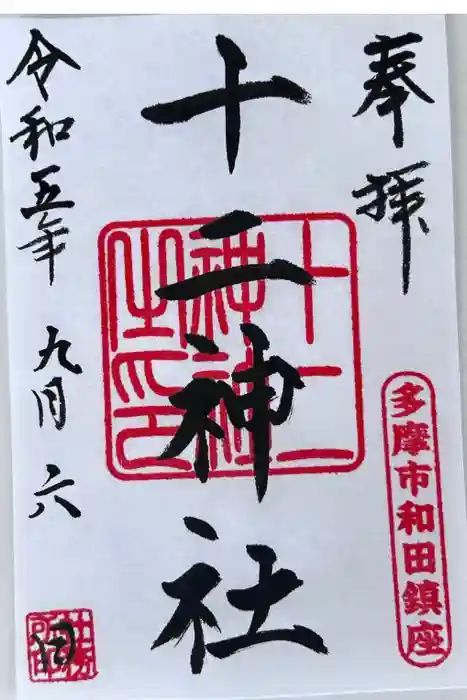 奉拝
多摩市和田鎮座
十二神社
十二神社之印
令和五年 九月 六日